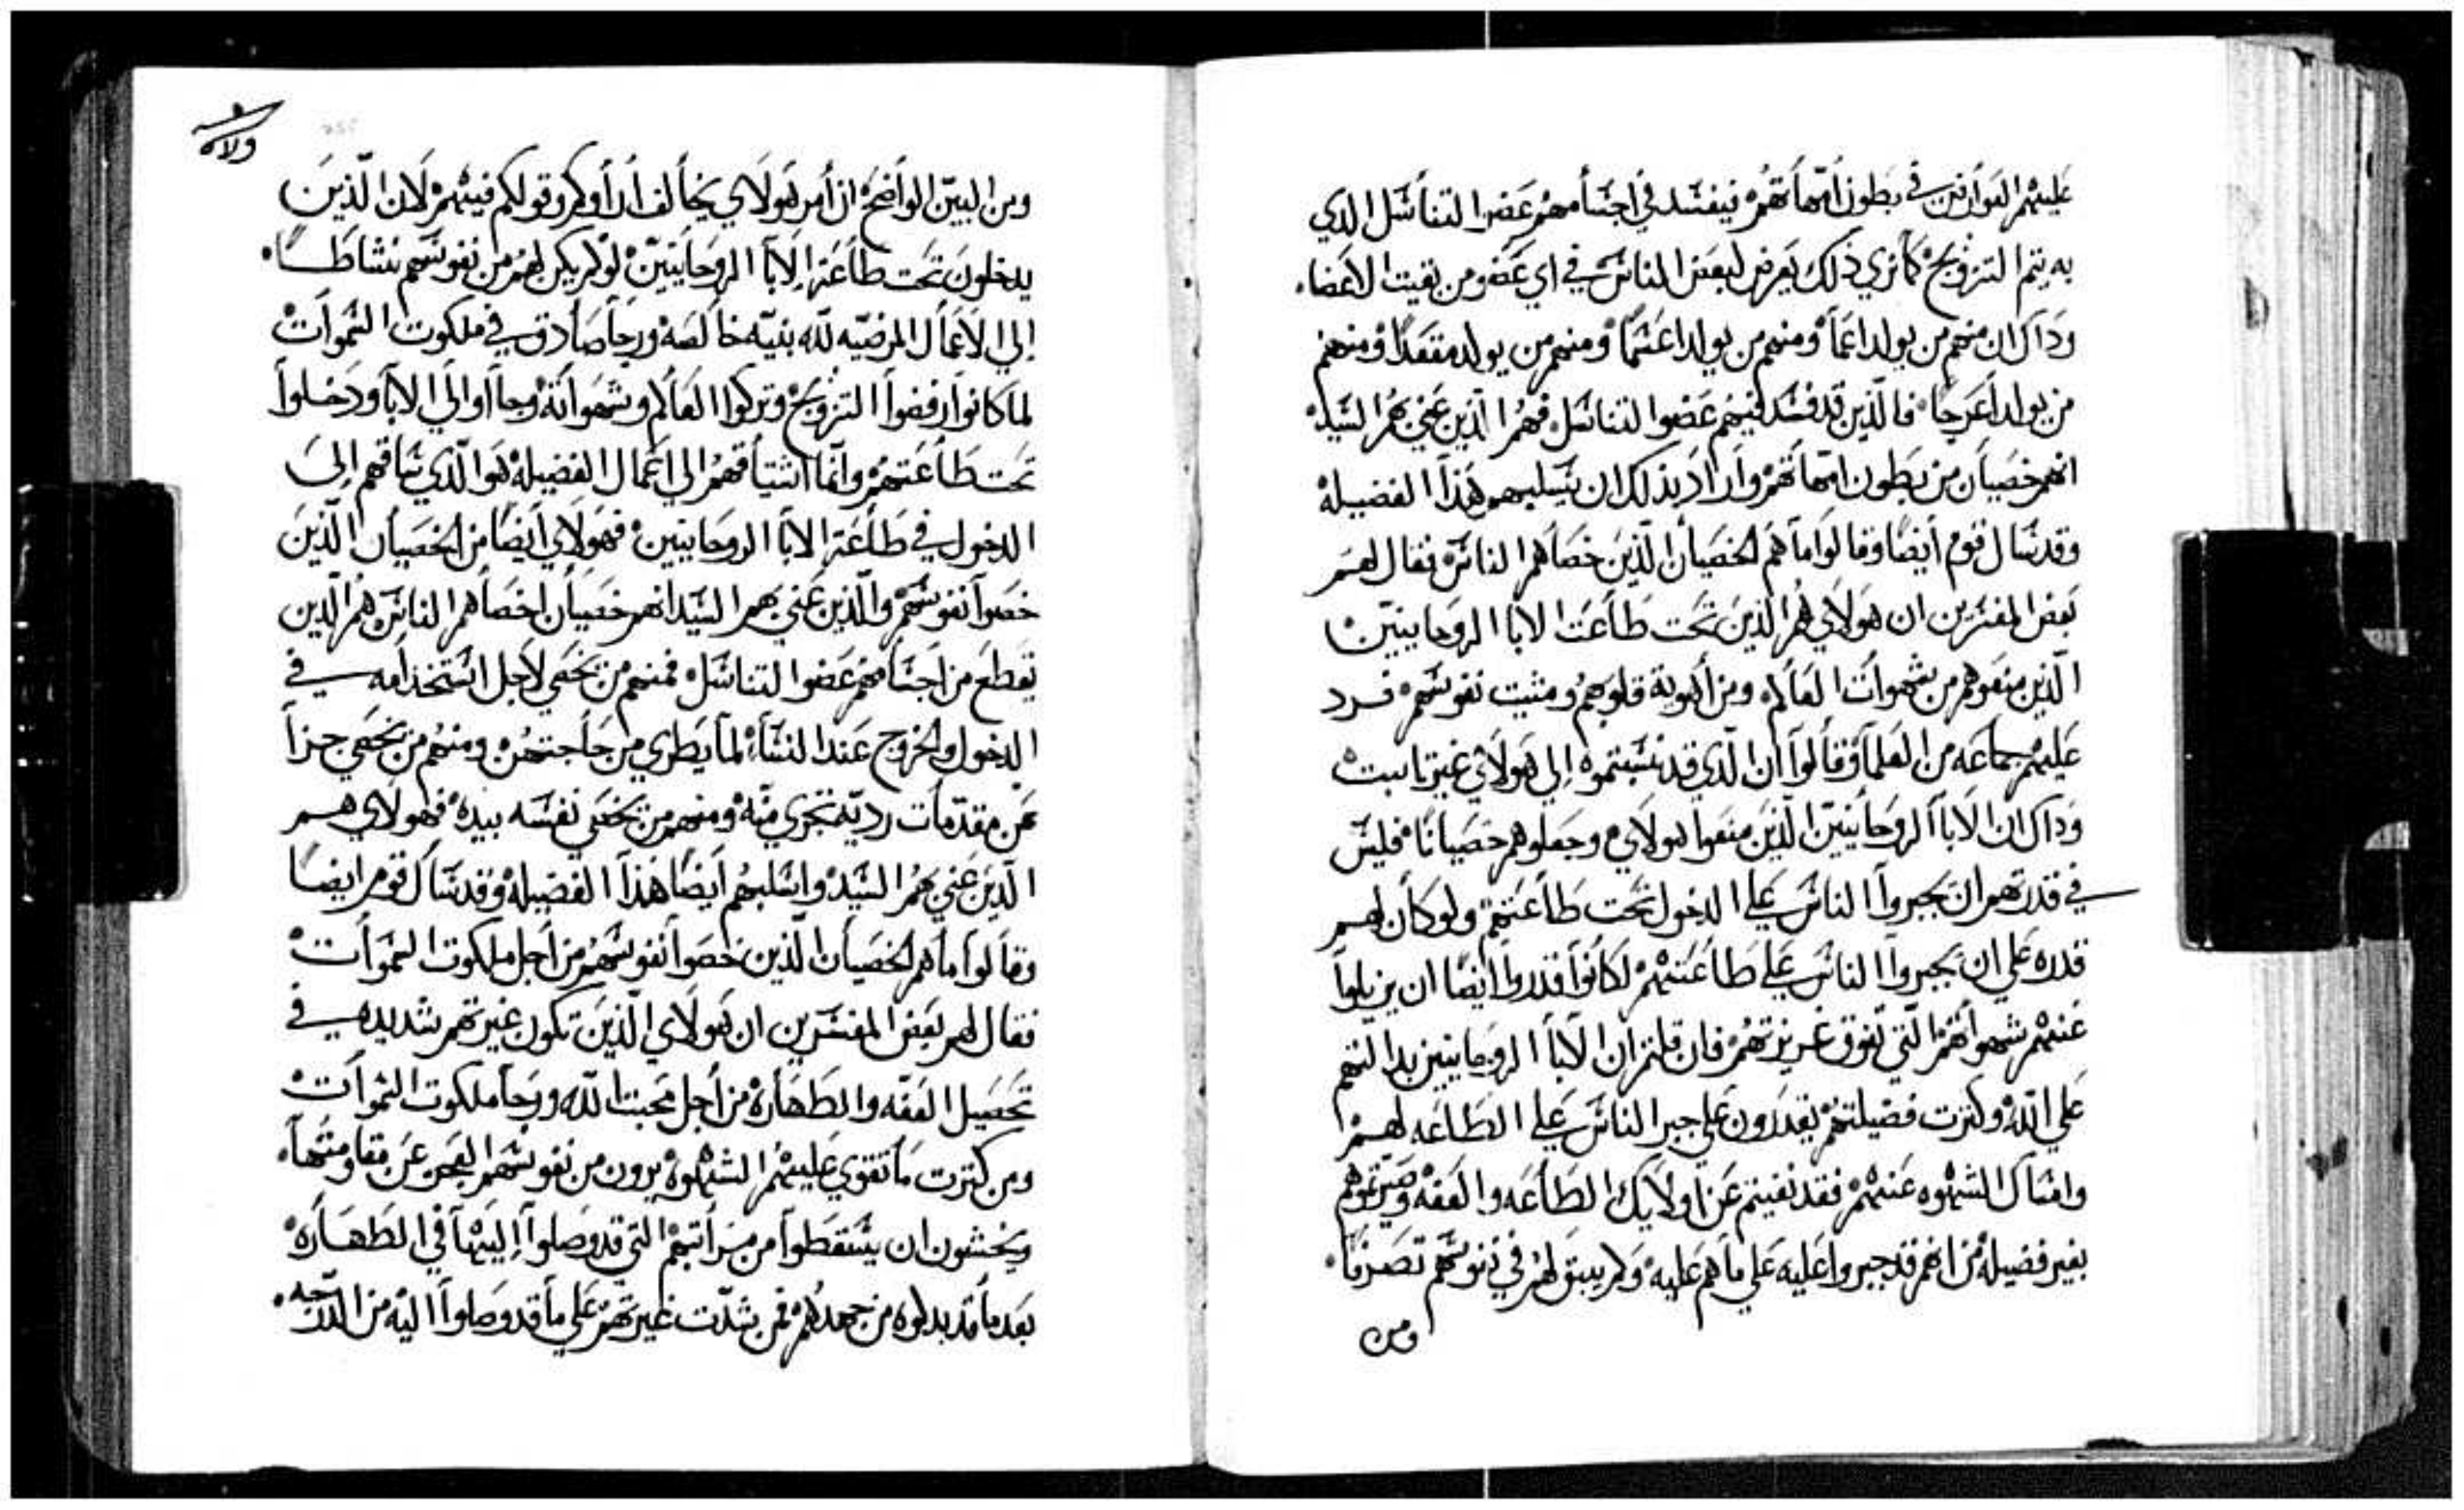 عليهم العوارض في بطون امهاتهم فيفسد في اجسامهم عضوا التناسل الدي
به يتم التزويج كما نري ذلك يعرض لبعض الناس في اي عضو من بقيت الاعضا
وذاك ان منهم من يولد اعما ومنهم من يولد اعسما ومنهم من يولد مقعدا ومنهم
من يولد اعرجا فالذين قد فسد فيهم عضوا التناسل فهم الذين عني بهم السيد
انهم خصيان من بطون امهاتهم واراد بذلك ان يسلبهم هذا الفضيله
وقد سال قوم أيضا وقالوا ما هم الخصيان الذين خصاهم الناس فقال لهم
بعض المفسرين ان هولاي هم الذين تحت طاعت الابا الروحانيين
الذين منعوهم من شهوات العالم ومن أهوية قلوبهم ومثيت نفوسهم فرد
عليهم جماعه من العلما وقالوا ان الدي قد نسبتموه إلي هولاي غير تابت
وذاك ان الابا الروحانيين الذين منعوا هولاي وجعلوهم خصيانا فليس
في قدرتهم ان يجبروا الناس علي الدخول تحت طاعتهم ولو كان لهم
قدره علي ان يجبروا الناس علي طاعتهم لكانوا قدروا ايضا ان يزيلوا
عنهم شهواتهم التي تفوق غريزتهم فان قلتم ان الابا الروحانيين بدالتهم
علي الله وكترت فضيلتهم يقدرون علي جبر الناس علي الطاعه لهم
وامساك الشهوه عنهم فقد نفيتم عن اولايك الطاعه والعفه وصيرتموهم
بغير فضيله من انهم قد جبروا عليه علي ما هم عليه ولم يبق لهم في نفوسهم تصرفا
ومن
ولاه
ومن البين الواضح ان أمر هولاي يخالف اراوكم وقولكم فيهم لان الذين
يدخلون تحت طاعة الابا الروحانيين لو لم يكن لهم من نفوسهم نشاطا
إلي الاعمال المرضيه لله بنيه خالصه ورجا صادق في ملكوت السموات
لما كانوا رفضوا التزويج وتركوا العالم وشهواته وجاوا إلي الابا ودخلوا
تحت طاعتهم وانما اشتياقهم إلي اعمال الفضيله هو الذي ساقهم إلي
الدخول في طاعة الابا الروحانيين فهولاي أيضا من الخصيان الذين
خصوا نفوسهم والذين عني بهم السيد انهم خصيان اخصاهم الناس هم الذين
تقطع من اجسامهم عضوا التناسل فمنهم من يخصي لاجل استخدامه في
الدخول والخروج عند النساء لما يطري من حاجتهن ومنهم من يخصي جزا
عن مقدمات رديه تجري منه ومنهم من يخصي نفسه بيده فهولاي هم
الذين عني بهم السيد واسلبهم أيضا هذا الفضيله وقد سال قوم ايضا
وقالوا ما هم الخصيان الذين خصوا نفوسهم من أجل ملكوت السموات
فقال لهم بعض المفسرين ان هولاي الذين تكون غيرتهم شديده في
تحصيل العفه والطهاره من أجل محبت الله ورجا ملكوت السموات
ومن كترت ما تقوي عليهم الشهوه يرون من نفوسهم العجز عن مقاومتها
ويخشون ان يسقطوا من مراتبهم التي قد وصلوا إليها في الطهاره
بعد ما قد بدلوه من جهدهم فمن شدت غيرتهم علي ما قد وصلوا اليه من الدرجه